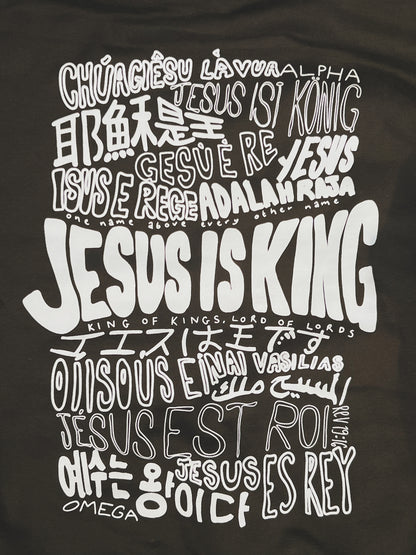 CHÚAGIÊSU LÀVUA ALPHA
JESUS IST KÖNIG
耶穌是王
GESÙ È RE YESUS
ISUS E REGE ADALAH RAJA
one name above every other name
JESUS IS KING
KING OF KINGS, LORD OF LORDS
イエスは王です
OIISOUS EÍNAI VASILIAS
المسيح ملك
JÉSUS EST ROI REV 19:16
예수는 왕이다 JESUS ES REY
OMEGA